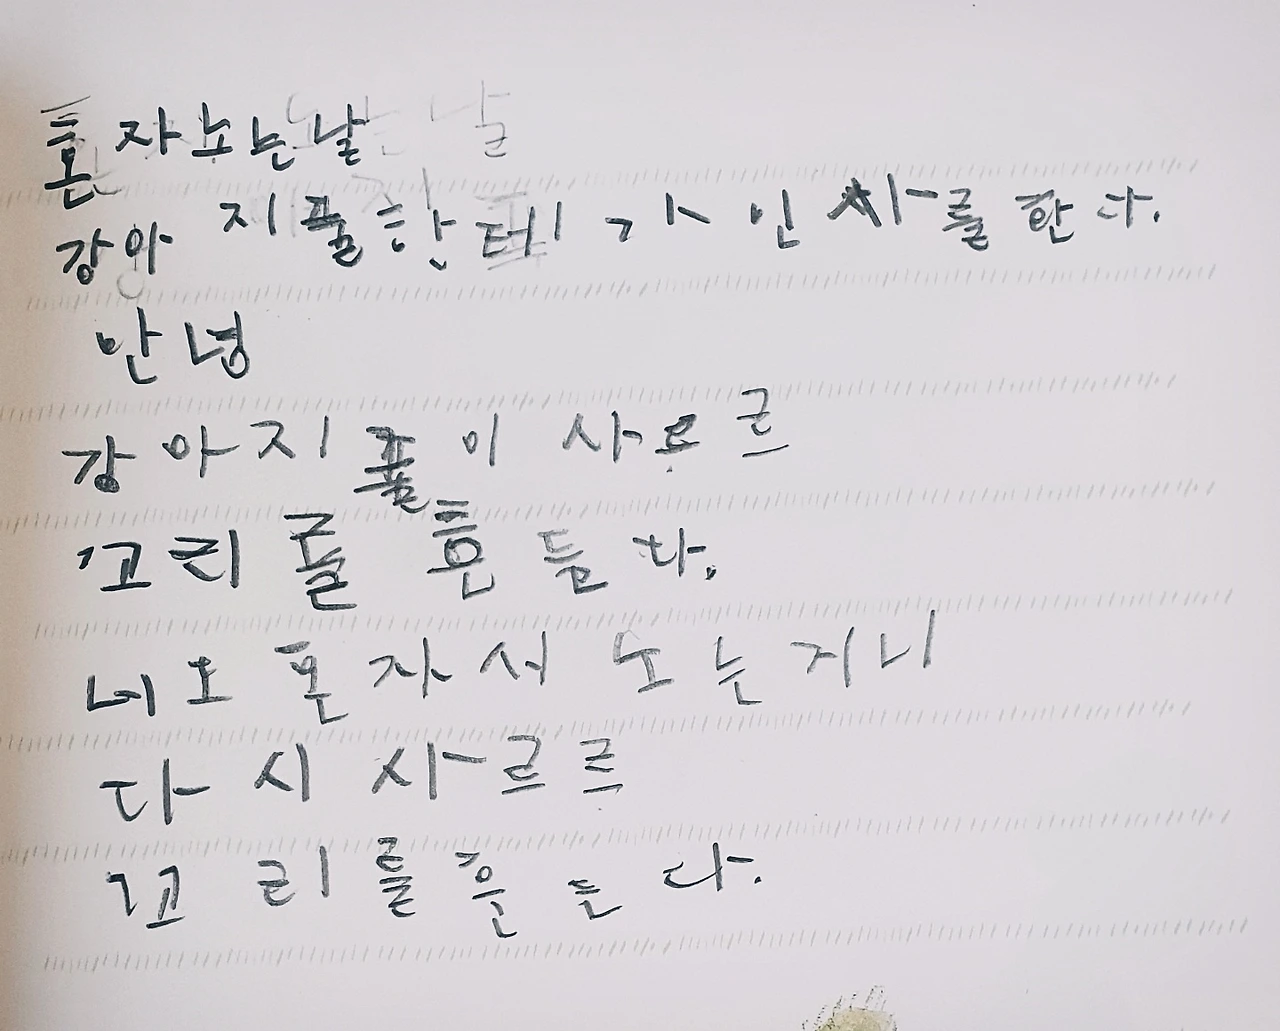 혼자 노는 날
강아지풀한테 가 인사를 한다.
안녕
강아지풀이 사르르
꼬리를 흔든다.
네도 혼자서 노는 지니
다시 사르르
꼬리를 흔든다.